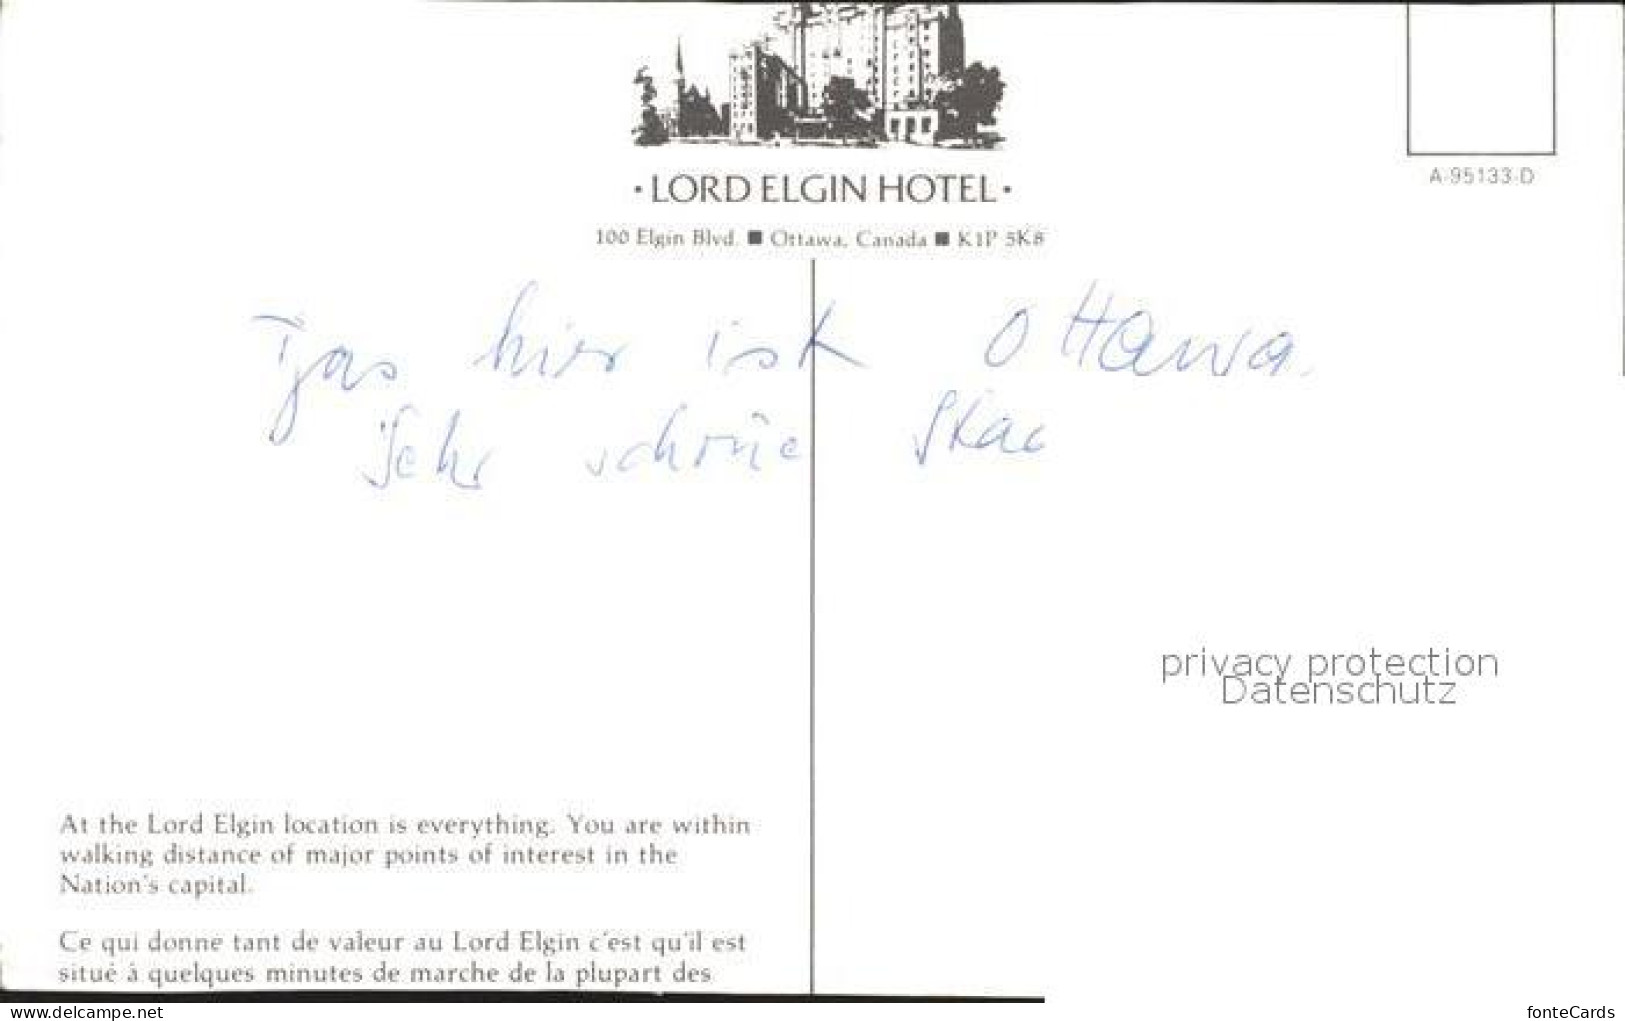 · LORD ELGIN HOTEL ·
100 Elgin Blvd. ■ Ottawa, Canada ■ K1P 5K8
A-95133-D
Das hier ist Ottawa.
Sehr schöne
privacy protection
Datenschutz
At the Lord Elgin location is everything. You are within
walking distance of major points of interest in the
Nation's capital.
Ce qui donne tant de valeur au Lord Elgin c'est qu'il est
situé à quelques minutes de marche de la plupart des
www.delcampe.net
fonteCards